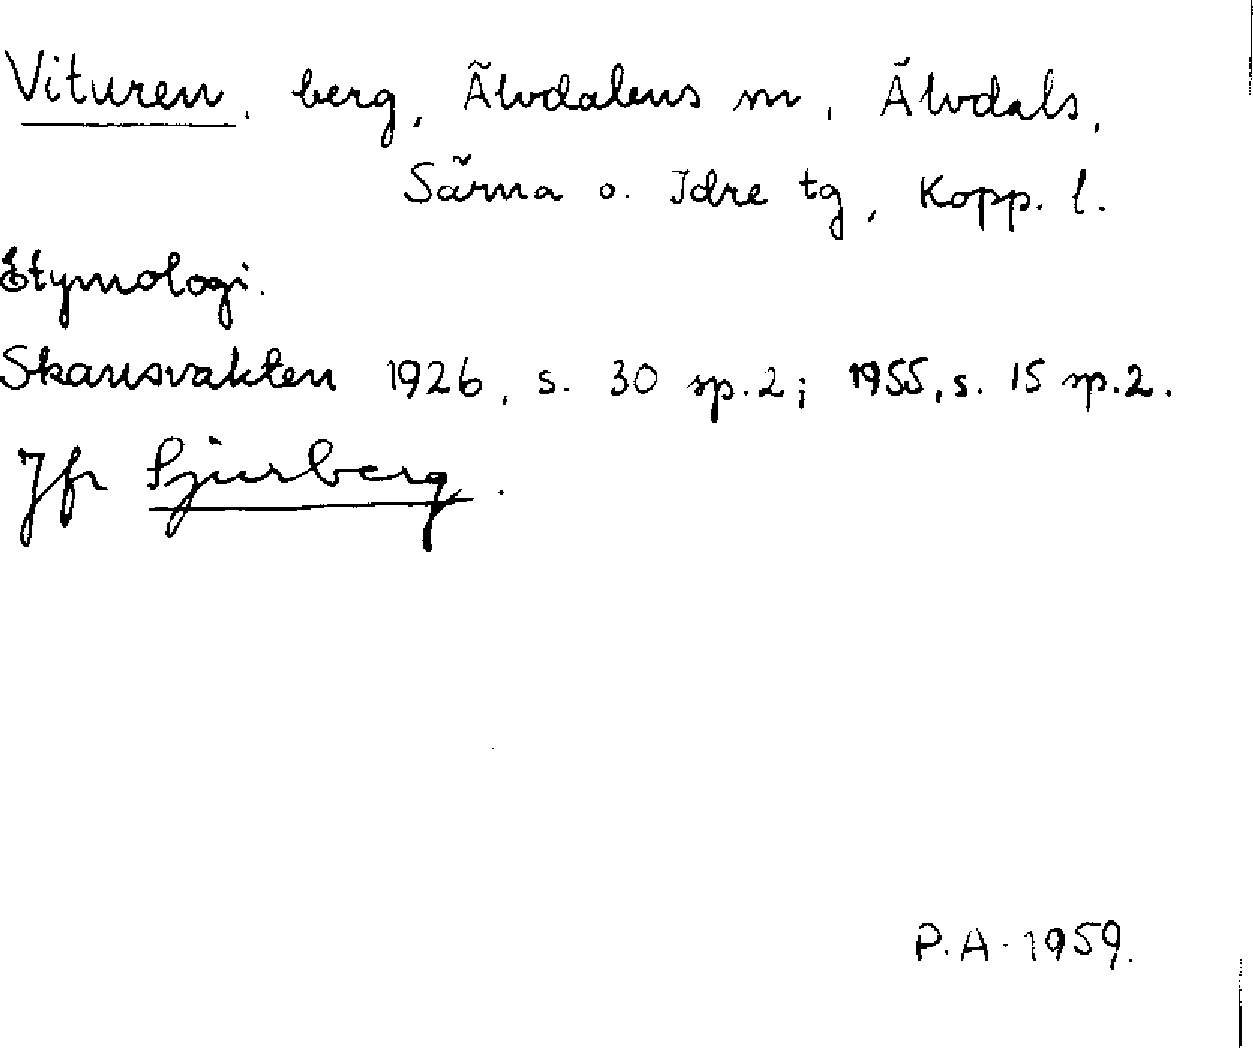 Vituren, berg, Älvdalens sn, Älvdals,
Särna o. Idre tg, Kopp. l.
Etymologi.
Skansvakten 1926, s. 30 sp. 2; 1955, s. 15 sp. 2.
Jfr Sjurberg.
P.A. 1959.